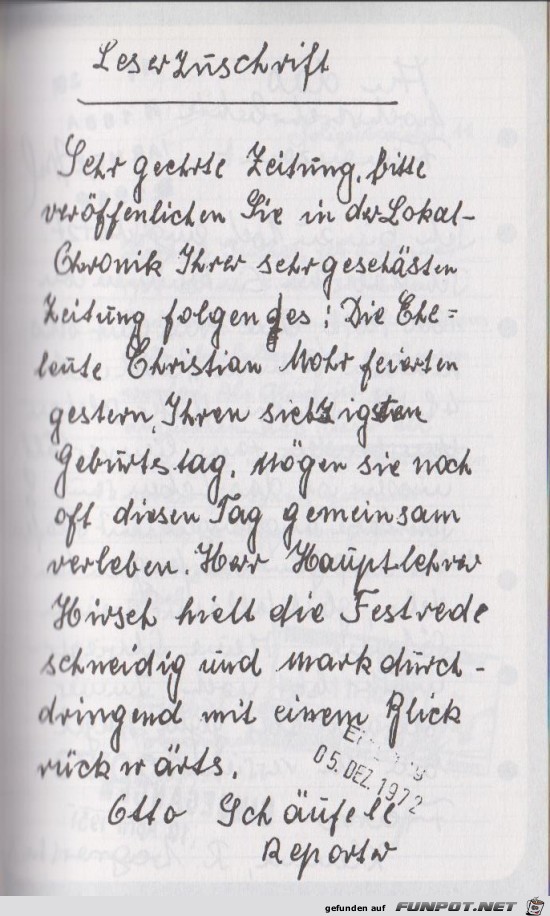 Leserzuschrift
Sehr geehrte Zeitung, bitte
veröffenlichen Sie in der Lokal-
Chronik Ihrer sehr geschästen
Zeitung folgendes: Die Ehe=
leute Christian Mohr feierten
gestern, Ihren siebzigsten
Geburtstag. Mögen sie noch
oft diesen Tag gemeinsam
verleben. Herr Hauptlehrer
Hirsch hielt die Festrede
schneidig und markdurch-
dringend mit einem Blick
rückwärts.
05. DEZ. 1972
Otto Schäufele
Reporter
gefunden auf FUNPOT.NET